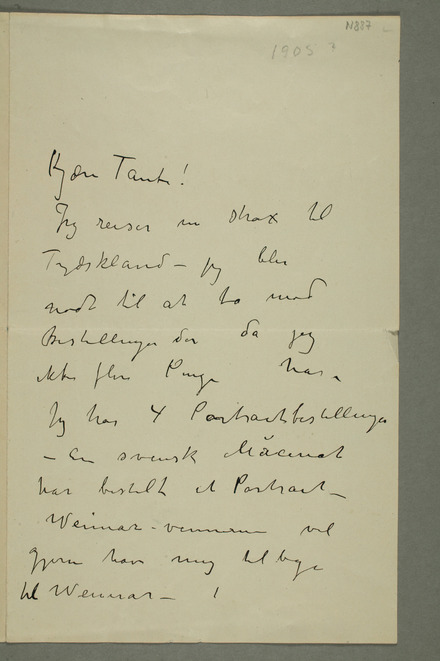 N 887
1905 ?
Kjære Tante!
Jeg reiser nu strax til
Tydskland – jeg blir
nødt til at ta mod
Bestillinger der da jeg
ikke flere Penge har –
Jeg har 4 Portraetbestillinger
– En svensk Mäcenat
har bestilt et Portraet –
Weimar-vennerne vil
gjerne have mig tilbage
til Weimar – !